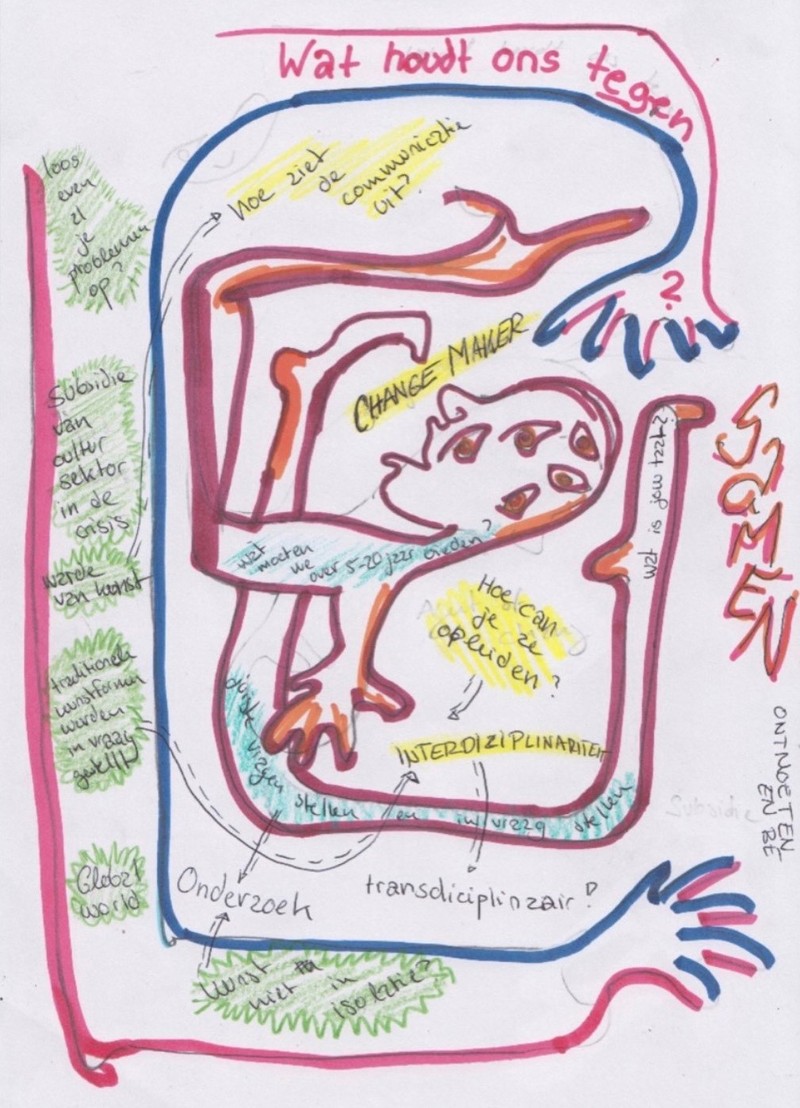 Wat houdt ons tegen
?
Hoe ziet
de
communicatie
uit?
loos
even
al
je
problemen
op?
CHANGE MAKER
Subsidie
van
cultur
sektor
in de
crisis
SAMEN
wat is jouw taak?
wat
moeten
we
over 5-20 jaar
Hoe can
je ze
opleiden?
warde
van kunst
traditionele
kunstformen
worden
in vraag
gestellt
INTERDIZIPLINARITEIT
juiste vragen
stellen
en
in vraag
stellen
Subsidie
ONTMOETEN
EN BE
Global
world
Onderzoek
transdiciplinair?
kunst
niet
in
isolatie?